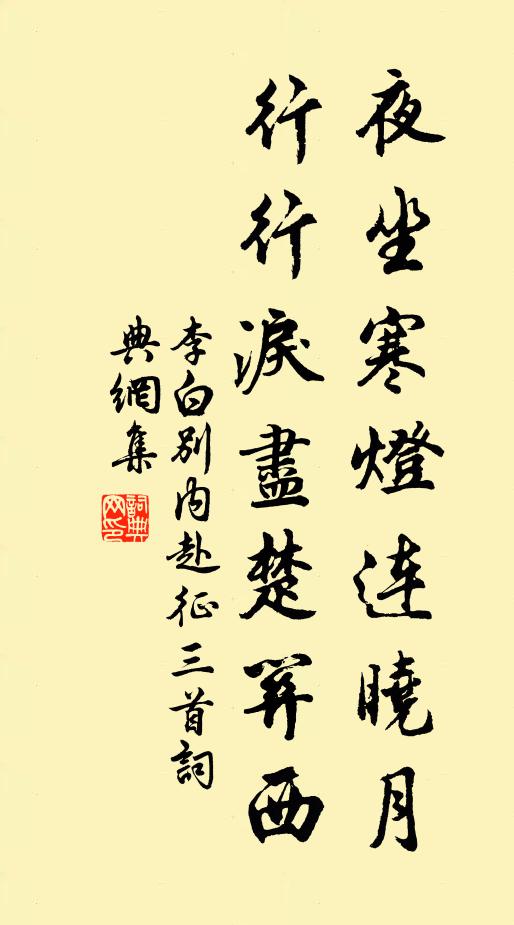 夜坐寒燈連曉月
行行淚盡楚關西
李白別內赴征三首詞
典網集
詞典網印